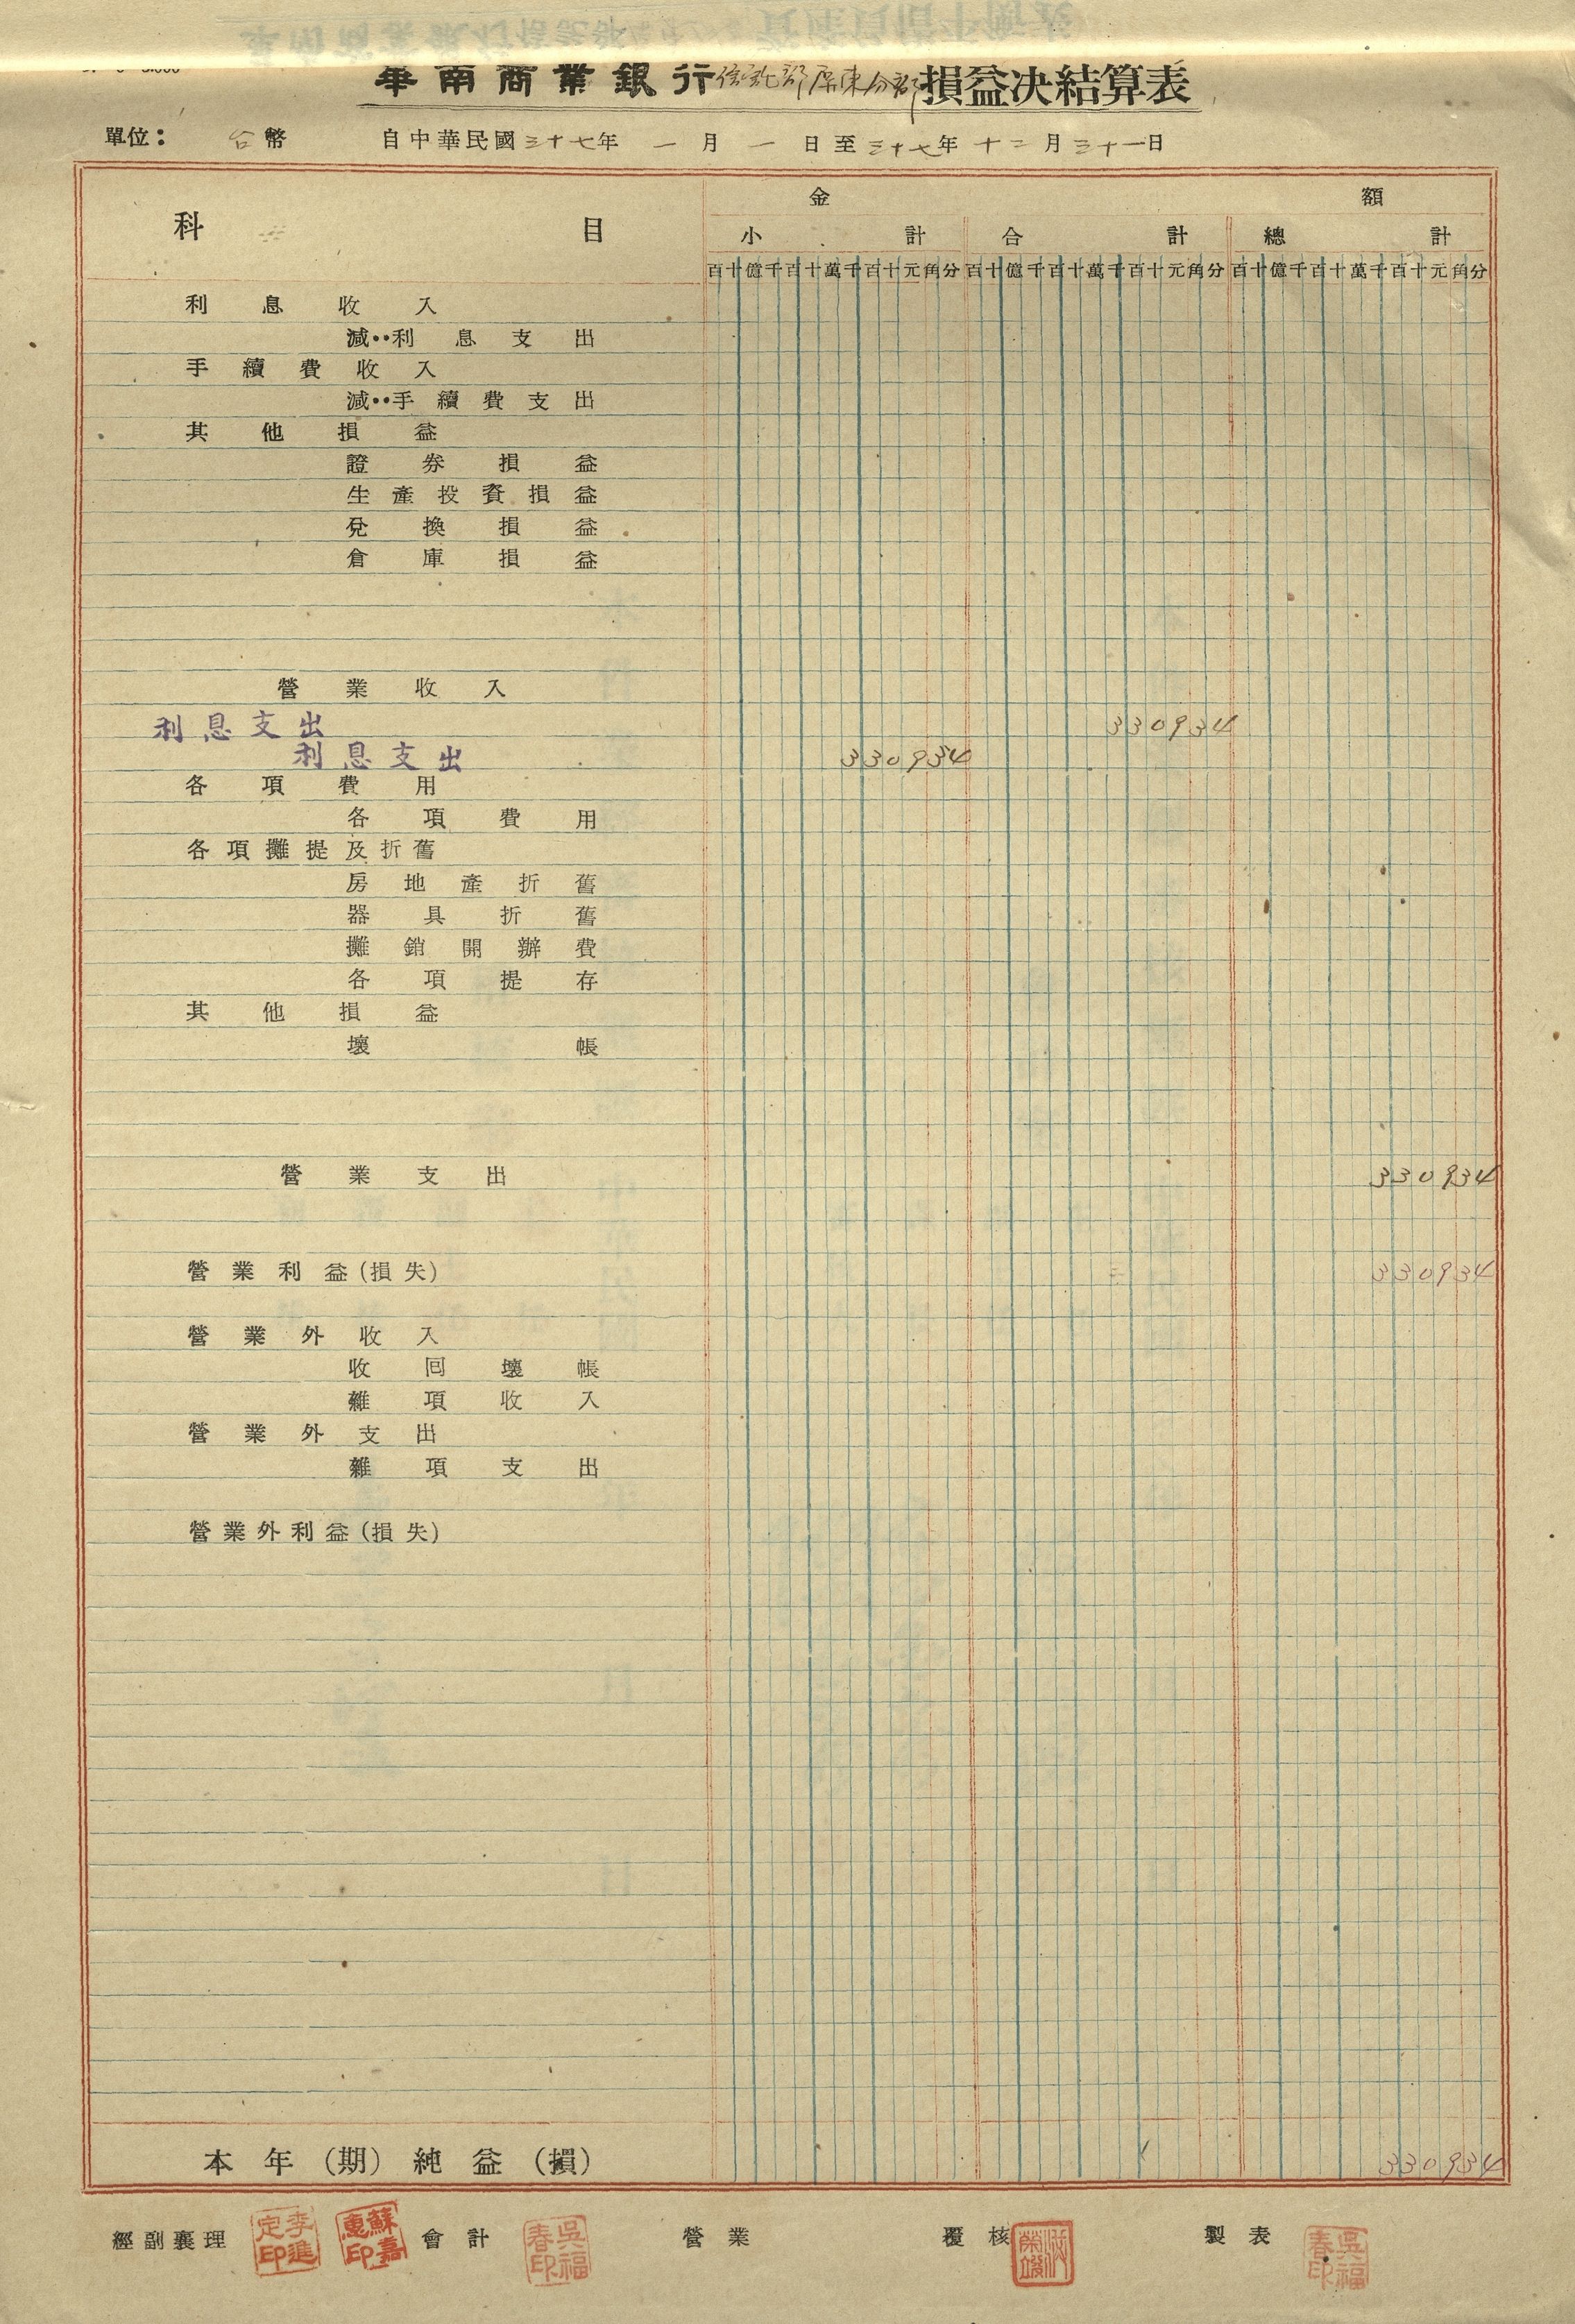 華南商業銀行信託部屏東分部損益決結算表
單位：台幣 自中華民國三十七年一月一日至三十七年十二月三十一日
科目 金額
小計 合計 總計
百十億千百十萬千百十元角分 百十億千百十萬千百十元角分 百十億千百十萬千百十元角分
利息收入
減：利息支出
手續費收入
減：手續費支出
其他損益
證券損益
生產投資損益
兌換損益
倉庫損益
營業收入
利息支出 330934
利息支出 330934
各項費用
各項費用
各項攤提及折舊
房地產折舊
器具折舊
攤銷開辦費
各項提存
其他損益
壞帳
營業支出 330934
營業利益(損失) 330934
營業外收入
收回壞帳
雜項收入
營業外支出
雜項支出
營業外利益(損失)
本年(期)純益(損) 330934
經副襄理 李進定印 蘇嘉惠印 會計 吳福春印 營業 覆核 製表 吳福春印